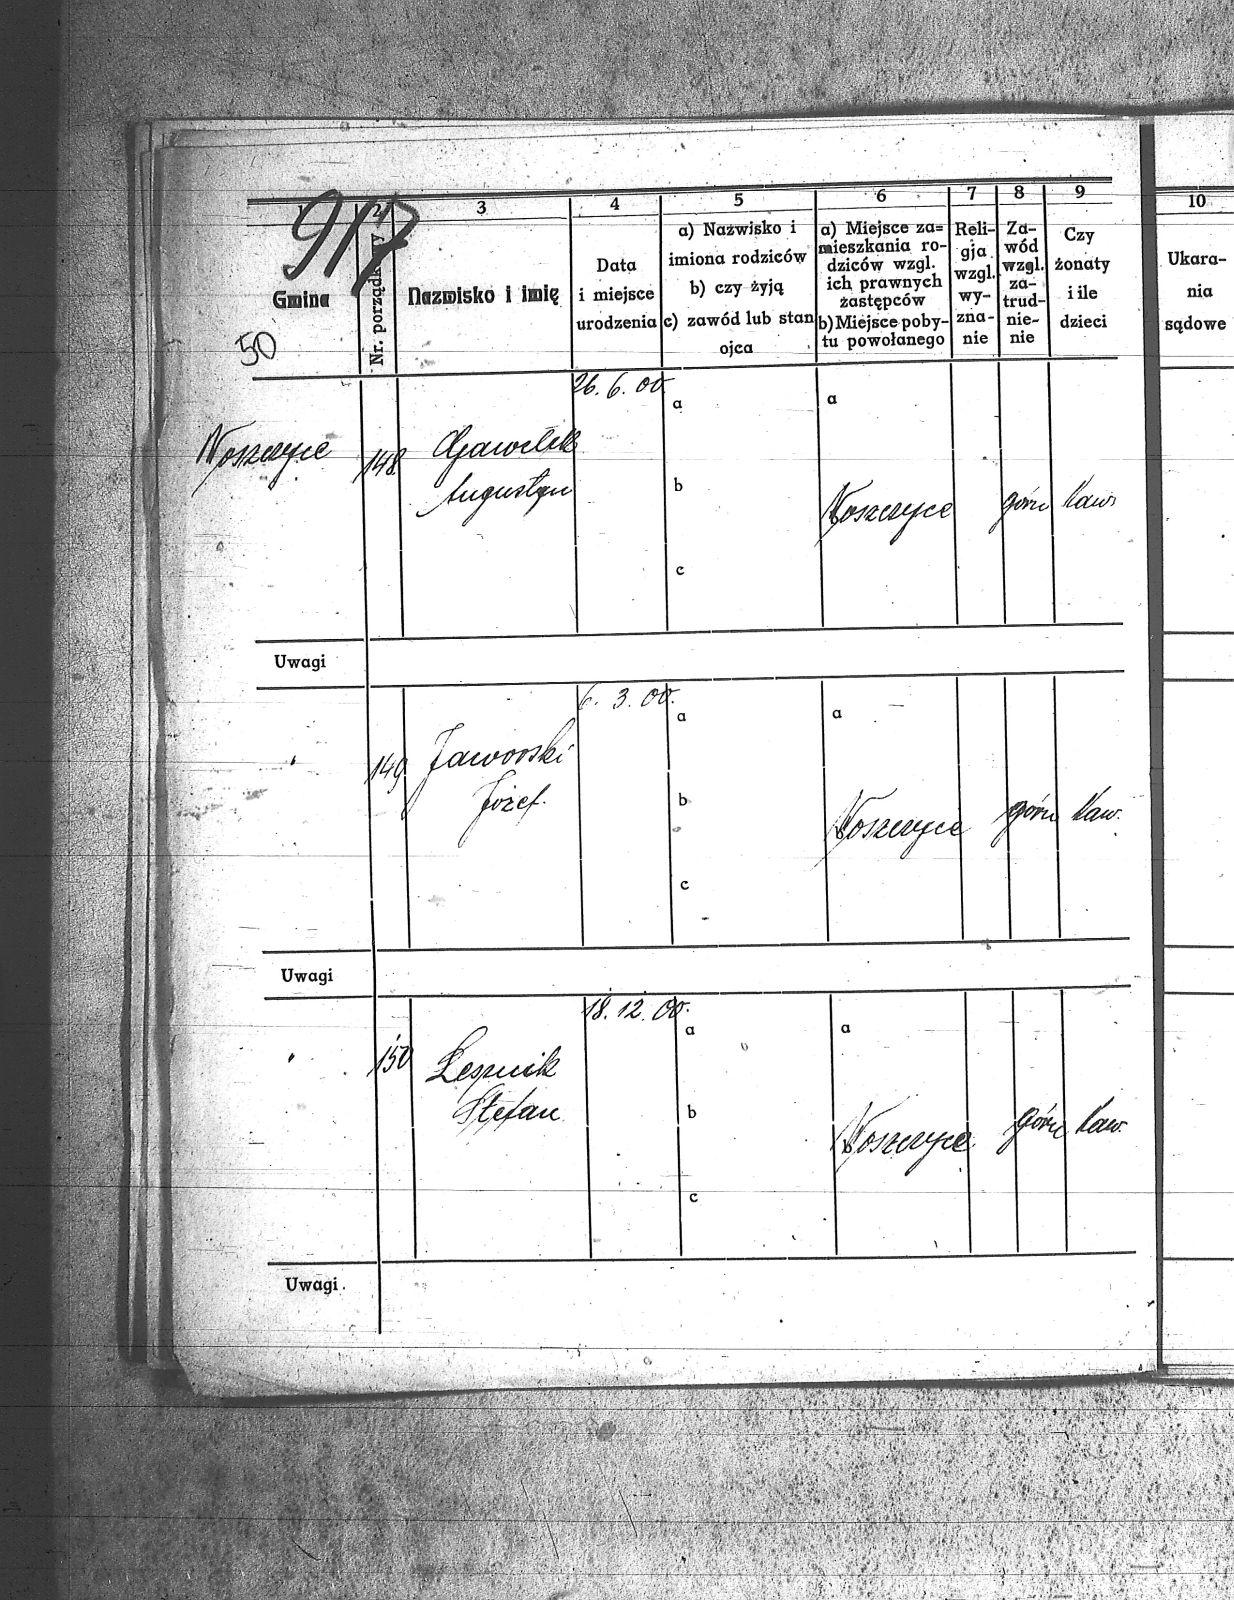 917
50
1 2 3 4 5 6 7 8 9 10
Gmina
Nr. porządk y
Nazwisko i imię
Data
i miejsce
urodzenia
a) Nazwisko i
imiona rodziców
b) czy żyją
c) zawód lub stan
ojca
a) Miejsce za=
mieszkania ro-
dziców wzgl.
ich prawnych
zastępców
b) Miejsce poby-
tu powołanego
Reli-
gja
wzgl.
wy-
zna-
nie
Za-
wód
wzgl.
za-
trud-
nie-
nie
Czy
żonaty
i ile
dzieci
Ukara-
nia
sądowe
26. 6. 00.
a a
Noszczyce 148 Gawelek
Augustyn
b
Noszczyce górn kaw.
c
Uwagi
6. 3. 00.
a a
" 149 Jaworski
Józef.
b
Noszczyce górn kaw.
c
Uwagi
18. 12. 00.
a a
" 150 Lesznik
Stefan
b
Noszczyce górn kaw.
c
Uwagi